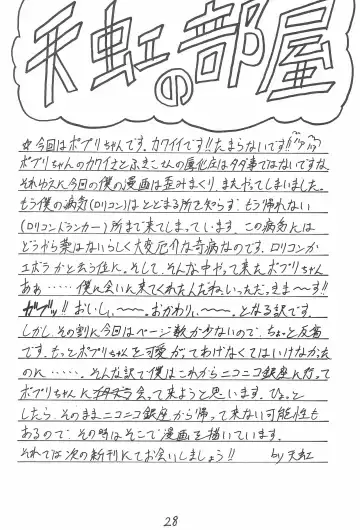 天虹の部屋
☆今回はポプリちゃんです。カワイイです!!たまらないです!!
ポプリちゃんのカワイさとふきこさんの魔化圧はタダ事ではないですな。
それゆえに今回の僕の漫画は歪みまくり、またやってしまいました。
もう僕の病気(ロリコン)はとどまる所を知らず、もう帰れない
(ロリコンドランカー)所まで来てしまっています。この病気には
どうやら薬はないらしく大変厄介な奇病なのです。ロリコンか
エボラかと云う位に。そして、そんな中やって来たポプリちゃん
ああ……僕に会いに来てくれたんだね。いっただっきま〜〜す!!
ガブッ!!おいしい〜〜。おかわりぃ〜〜。となる訳です。
しかし、その割に今回はページ数が少ないので、ちょっと反省
です。もっとポプリちゃんを可愛がってあげなくてはいけなかった
のに……。そんな訳で僕はこれからニコニコ銀座に行って
ポプリちゃんに会って来ようと思います。ひょっと
したら、そのままニコニコ銀座から帰って来ない可能性も
あるので、その時はそこで漫画を描いています。
それでは次の新刊にてお会いしましょう!! by天虹
28